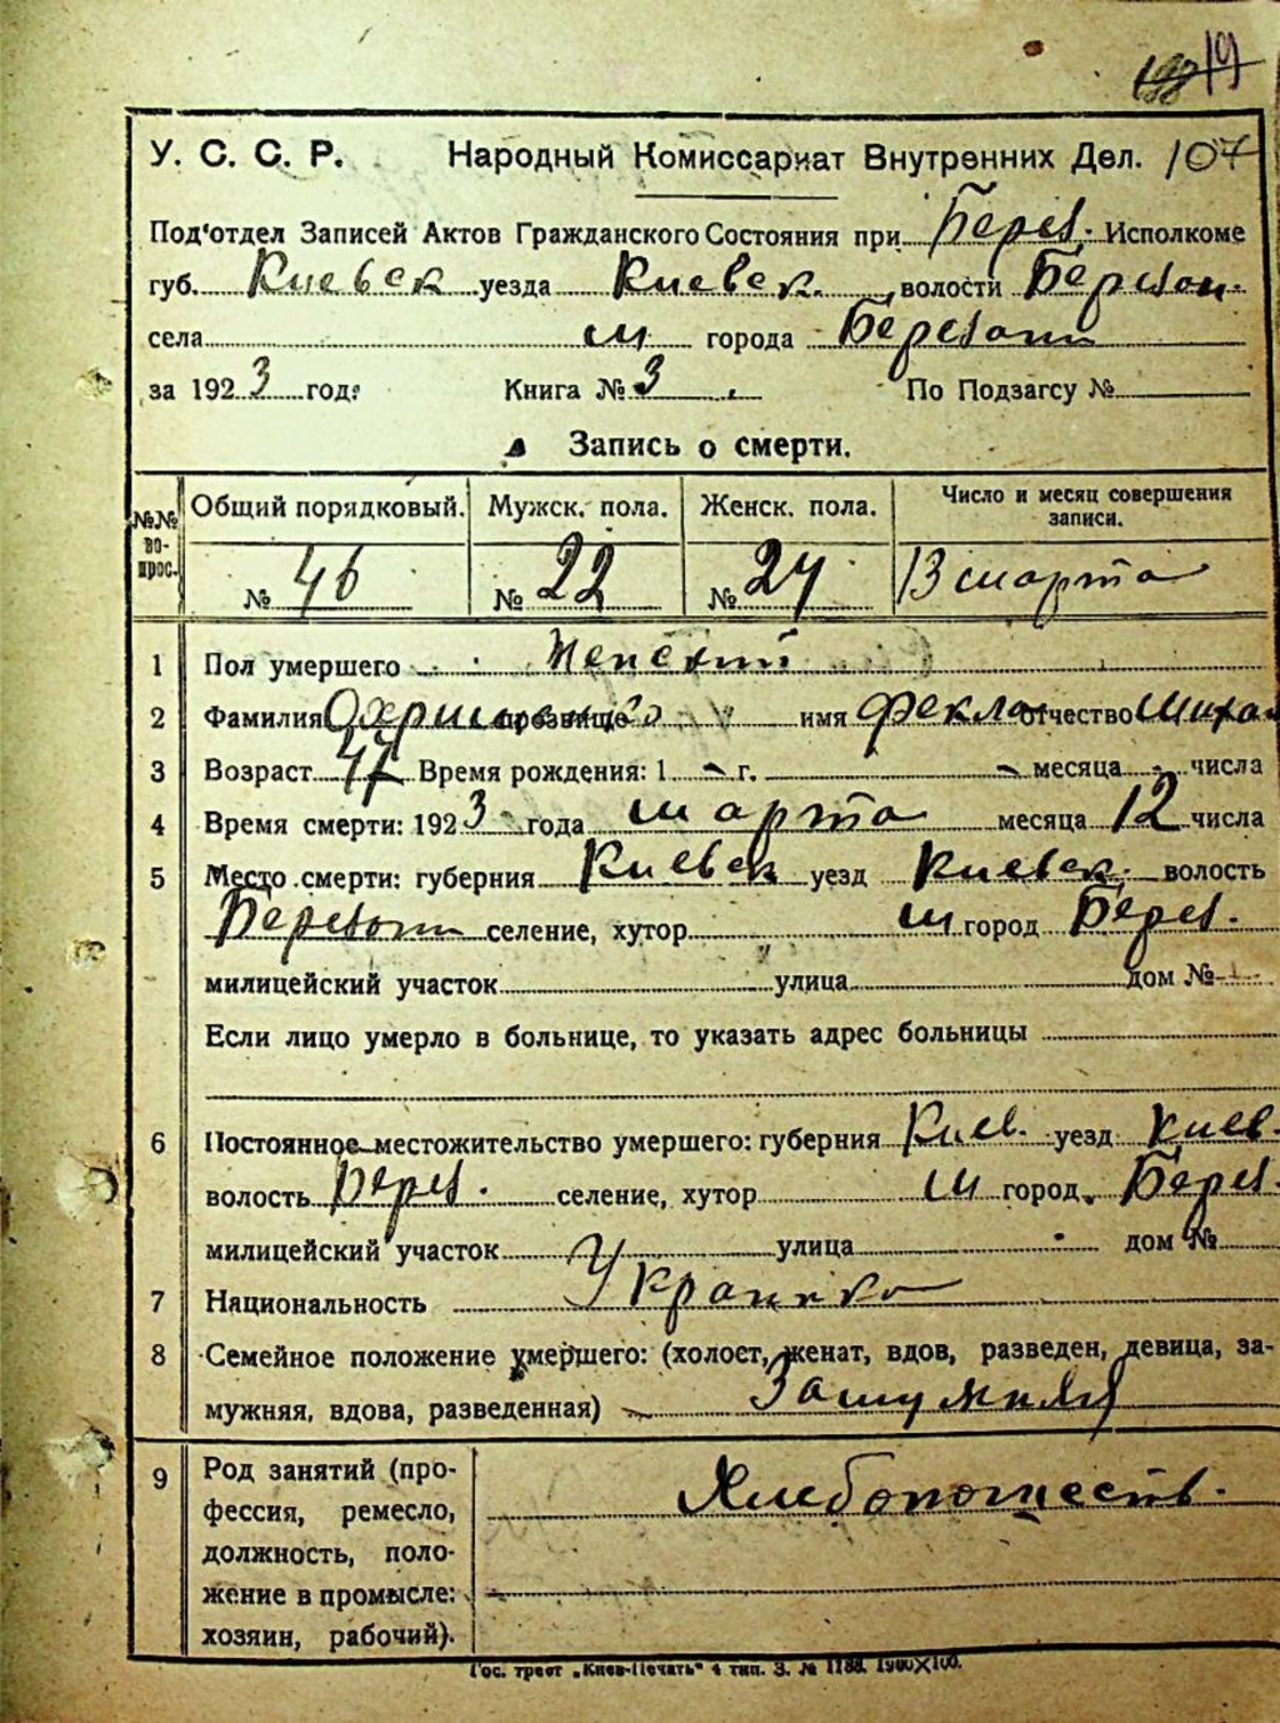 19
У. С. С. Р. Народный Комиссариат Внутренних Дел. 107
Под‘отдел Записей Актов Гражданского Состояния при Берез. Исполкоме
губ. Киевск уезда Киевск. волости Березан.
села м города Березани
за 1923 год: Книга № 3 По Подзагсу №
Запись о смерти.
№№ во-прос. Общий порядковый. Мужск. пола. Женск. пола. Число и месяц совершения записи.
№ 46 № 22 № 24 13 марта
1 Пол умершего Женский
2 Фамилия прозвище имя Фекла отчество Миха
3 Возраст 47 Время рождения: 1 г. месяца числа
4 Время смерти: 1923 года марта месяца 12 числа
5 Место смерти: губерния Киевск уезд Киевск. волость
Березани селение, хутор м город Берез.
милицейский участок улица дом №
Если лицо умерло в больнице, то указать адрес больницы
6 Постоянное местожительство умершего: губерния Киев. уезд Киев.
волость Берез. селение, хутор м город Берез.
милицейский участок улица дом №
7 Национальность Украинка
8 Семейное положение умершего: (холост, женат, вдов, разведен, девица, за-
мужняя, вдова, разведенная) Замужняя
9 Род занятий (про-
фессия, ремесло,
должность, поло-
жение в промысле:
хозяин, рабочий).
Гос. трест „Киев-Печать“ 4 тип. З. № 1188. 1900×100.